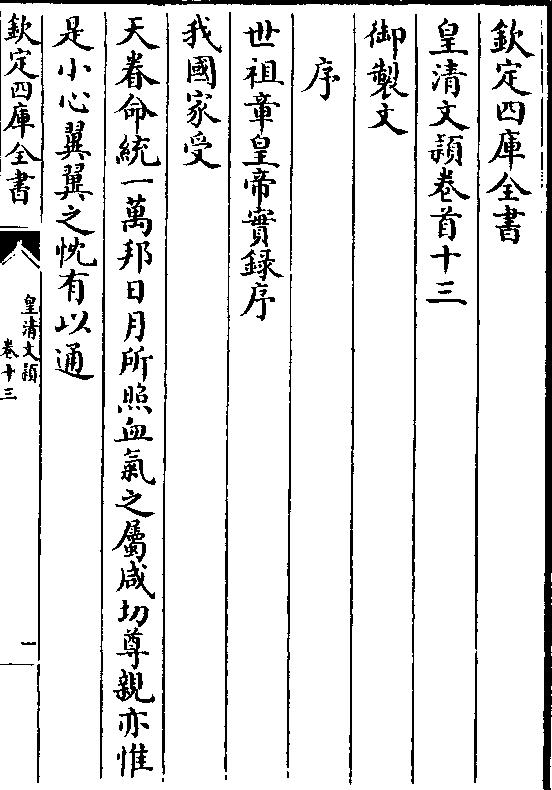 欽定四庫全書
皇清文穎卷首十三
御製文
序
世祖章皇帝實録序
我國家受
天眷命統一萬邦日月所照血氣之屬咸切尊親亦惟
是小心翼翼之忱有以通
欽定四庫全書
皇清文穎
卷十三
一